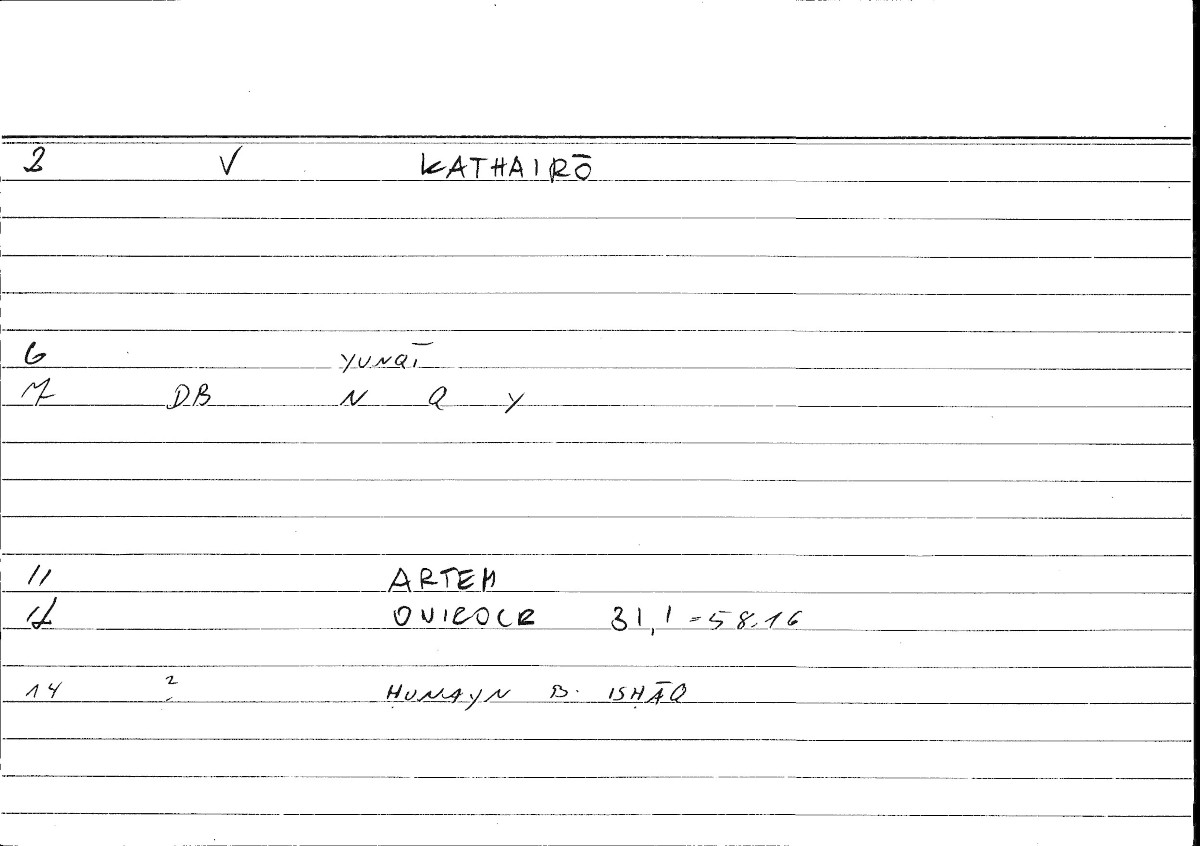 2 V KATHAIRŌ
6 YUNQĪ
7 DB N Q Y
11 ARTEM
12 ONIROCR 31,1=58.16
14 2 ḤUNAYN B. ISḤĀQ